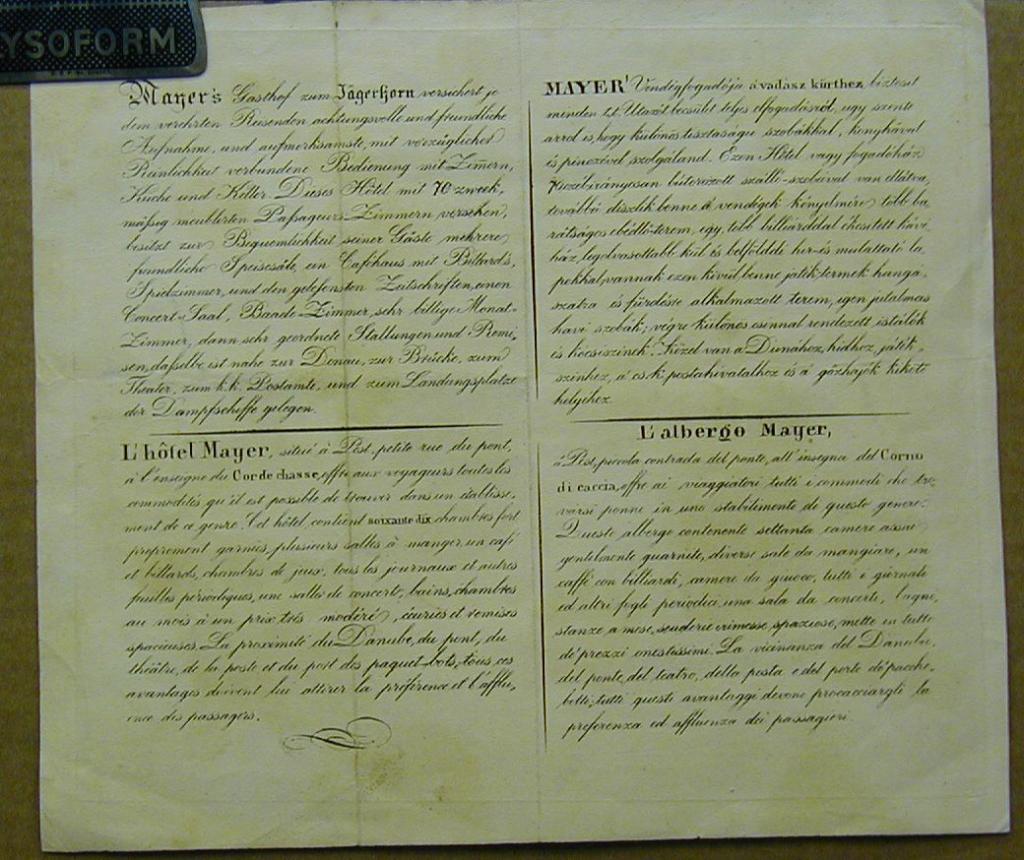 YSOFORM
Mayer's Gasthof zum Jägerhorn versichert je
dem verehrten Reisenden achtungsvolle und freundliche
Aufnahme, und aufmerksamste, mit vorzüglicher
Reinlichkeit verbundene Bedienung mit Zimern,
Küche und Keller. Dieses Hôtel mit 70 zweck,
mäßig meublirten Paßageurs-Zimmern versehen,
besitzt zur Bequemlichkeit seiner Gäste mehrere
freundliche Speisesäle, ein Cafehaus mit Billards,
Spielzimmer, und den gelesensten Zeitschriften, einen
Concert-Saal, Baade-Zimmer, sehr billige Monat-
Zimmer, dann sehr geordnete Stallungen und Remi,
sen, daßelbe ist nahe zur Donau, zur Brücke, zum
Theater, zum k.k. Postamte, und zum Landungsplatze
der Dampfschiffe gelegen.
MAYER' Vendégfogadója á vadász kürthez, biztosit
minden t.t. Utazót becsület teljes elfogadásról, úgy szinte
arrol is, hogy különös tisztaságu szobákkal, konyhával
és pinczével szolgáland. Ezen Hôtel vagy fogadóház
70 czélirányosan bútorozott szálló-szobával van ellátva,
továbbá diszlik benne á vendégek kényelmére több ba,
rátságos ebédlő-terem, egy, több billiárddal ékesitett kávé,
ház, legolvasottabb kül és belföldi hir-és mulattató la,
pokkal, vannak ezen kivül benne játék termek hangá,
szatra és fürdésre alkalmazott terem, igen jutalmas
havi szobák; végre különös csinnal rendezett istálók
és kocsiszinek. Közel van a Dunához, hidhoz, játék,
szinhez, á cs. k. postahivatalhoz és á gőzhajók kikötő
helyéhez.
L'hôtel Mayer, situé à Pest, petite rue du pont,
à l'enseigne du Cor de chasse, offre aux voyageurs toutes les
commodités qu'il est possible de trouver dans un établisse,
ment de ce genre. Cet hôtel contient soixante dix chambres fort
proprement garnies, plusieurs salles à manger, un café
et billards, chambres de jeux, tous les journaux et autres
feuilles périodiques, une salle de concert, bains, chambres
au mois à un prix très modéré, écuries et remises
spacieuses. La proximité du Danube, du pont, du
théâtre, de la poste et du port des paquet-bots, tous ces
avantages doivent lui attirer la préférence et l'afflu,
ence des passagers.
L'albergo Mayer,
à Pest, piccola contrada del ponte, all'insegna del Corno
di caccia, offre ai viaggiatori tutti i commodi che tro,
varsi ponno in uno stabilimento di questo genere.
Questo albergo contenente settanta camere assai
gentilmente guarnite, diverse sale da mangiare, un
caffé con billiardi, camere da giuoco, tutti i giornali
ed altri fogli periodici, una sala da concerti, bagni,
stanze a mese, scuderie e rimesse spaziose, mette in tutto
de'prezzi onestissimi. La vicinanza del Danubio,
del ponte, del teatro, della posta e del porto de'pacche,
botti, tutti questi avantaggi devono procacciargli la
preferenza ed affluenza dei passagieri.